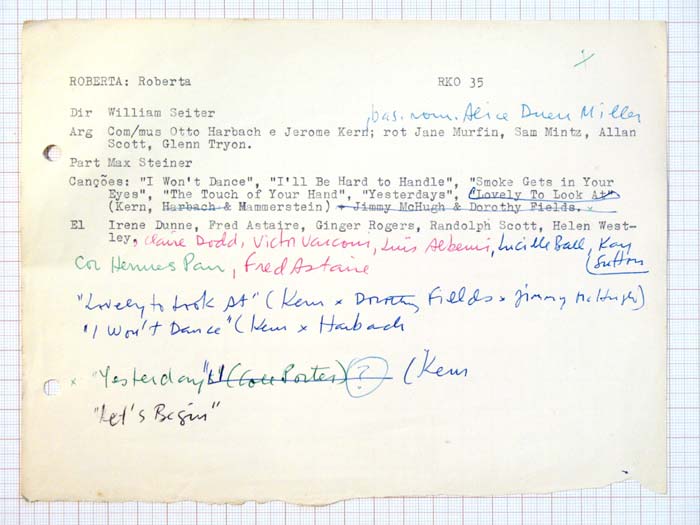 ROBERTA: Roberta RKO 35
Dir William Seiter , bas. rom. Alice Duer Miller
Arg Com/mus Otto Harbach e Jerome Kern; rot Jane Murfin, Sam Mintz, Allan
Scott, Glenn Tryon.
Part Max Steiner
Canções: "I Won't Dance", "I'll Be Hard to Handle", "Smoke Gets in Your
Eyes", "The Touch of Your Hand", "Yesterdays", (Lovely To Look At"
(Kern, Harbach & Hammerstein) + Jimmy McHugh & Dorothy Fields. x
El Irene Dunne, Fred Astaire, Ginger Rogers, Randolph Scott, Helen West-
ley, Claire Dodd, Victor Varconi, Luis Alberni, Lucille Ball, Kay
(Sutton
Cor Hermes Pan, Fred Astaire
"Lovely to Look At" (Kern x Dorothy Fields x Jimmy McHugh)
"I Won't Dance" (Kern x Harbach
x "Yesterday" (Cole Porter) (?) (Kern
"Let's Begin"